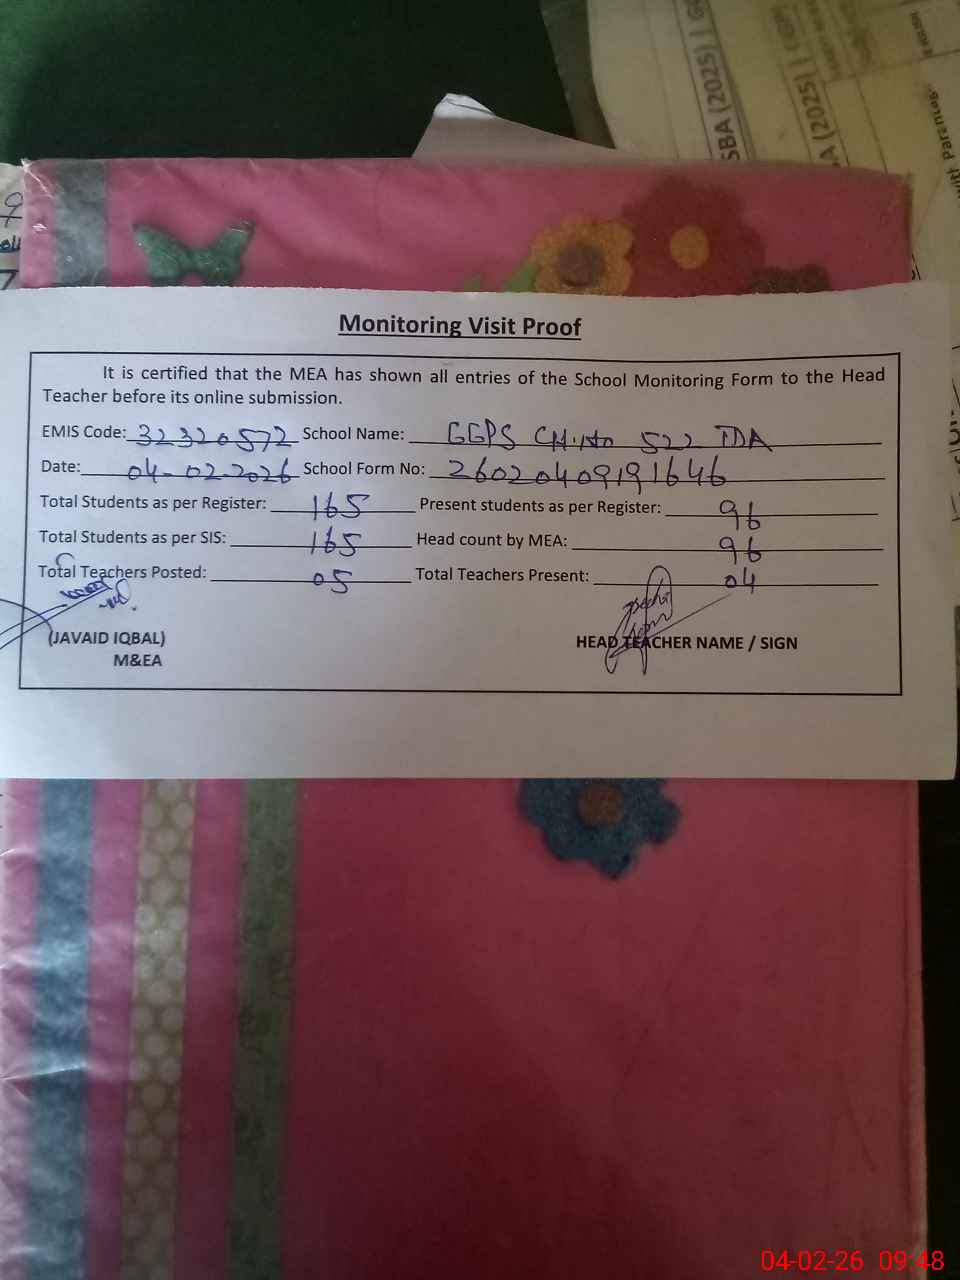 SBA (2025) | G
A (2025) | (GP
with Parents
Monitoring Visit Proof
It is certified that the MEA has shown all entries of the School Monitoring Form to the Head
Teacher before its online submission.
EMIS Code: 32320572 School Name: GGPS CH.No 522 TDA
Date: 04-02-2026 School Form No: 26020409191646
Total Students as per Register: 165 Present students as per Register: 96
Total Students as per SIS: 165 Head count by MEA: 96
Total Teachers Posted: 05 Total Teachers Present: 04
(JAVAID IQBAL) HEAD TEACHER NAME / SIGN
M&EA
04-02-26 09:48